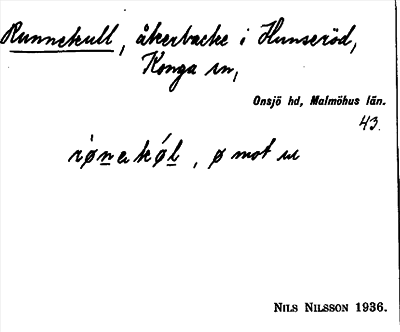 Runnekull, åkerbacke i Hunseröd,
Konga sn,
Onsjö hd, Malmöhus län.
43.
rø̀nekǿl, ø mot u
NILS NILSSON 1936.